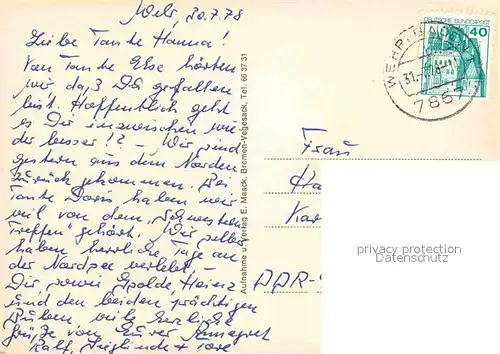 Wehr, 30.7.78
Liebe Tante Hanna!
Von Tante Else hörten
wir, daß Du gefallen
bist. Hoffentlich geht
es Dir inzwischen wie
der besser!? – Wir sind
gestern aus dem Norden
zurück gekommen. Bei
Tante Doris haben wir
viel von dem „Schwestern
Treffen" gehört. Wir selber
haben herrliche Tage an
der Nordsee verlebt. –
Dir, sowie Isolde, Heinz
und den beiden prächtigen
Buben viele herzliche
Grüße von Eurer Annegret
Ralf, Sieglinde +
Aufnahme u. Verlag E. Maack, Bremen-Vegesack, Tel. 66 37 31
DEUTSCHE BUNDESPOST
40
WEHR, BADEN
31.
786
Frau
Ha
Kar
DDR-
privacy protection
Datenschutz